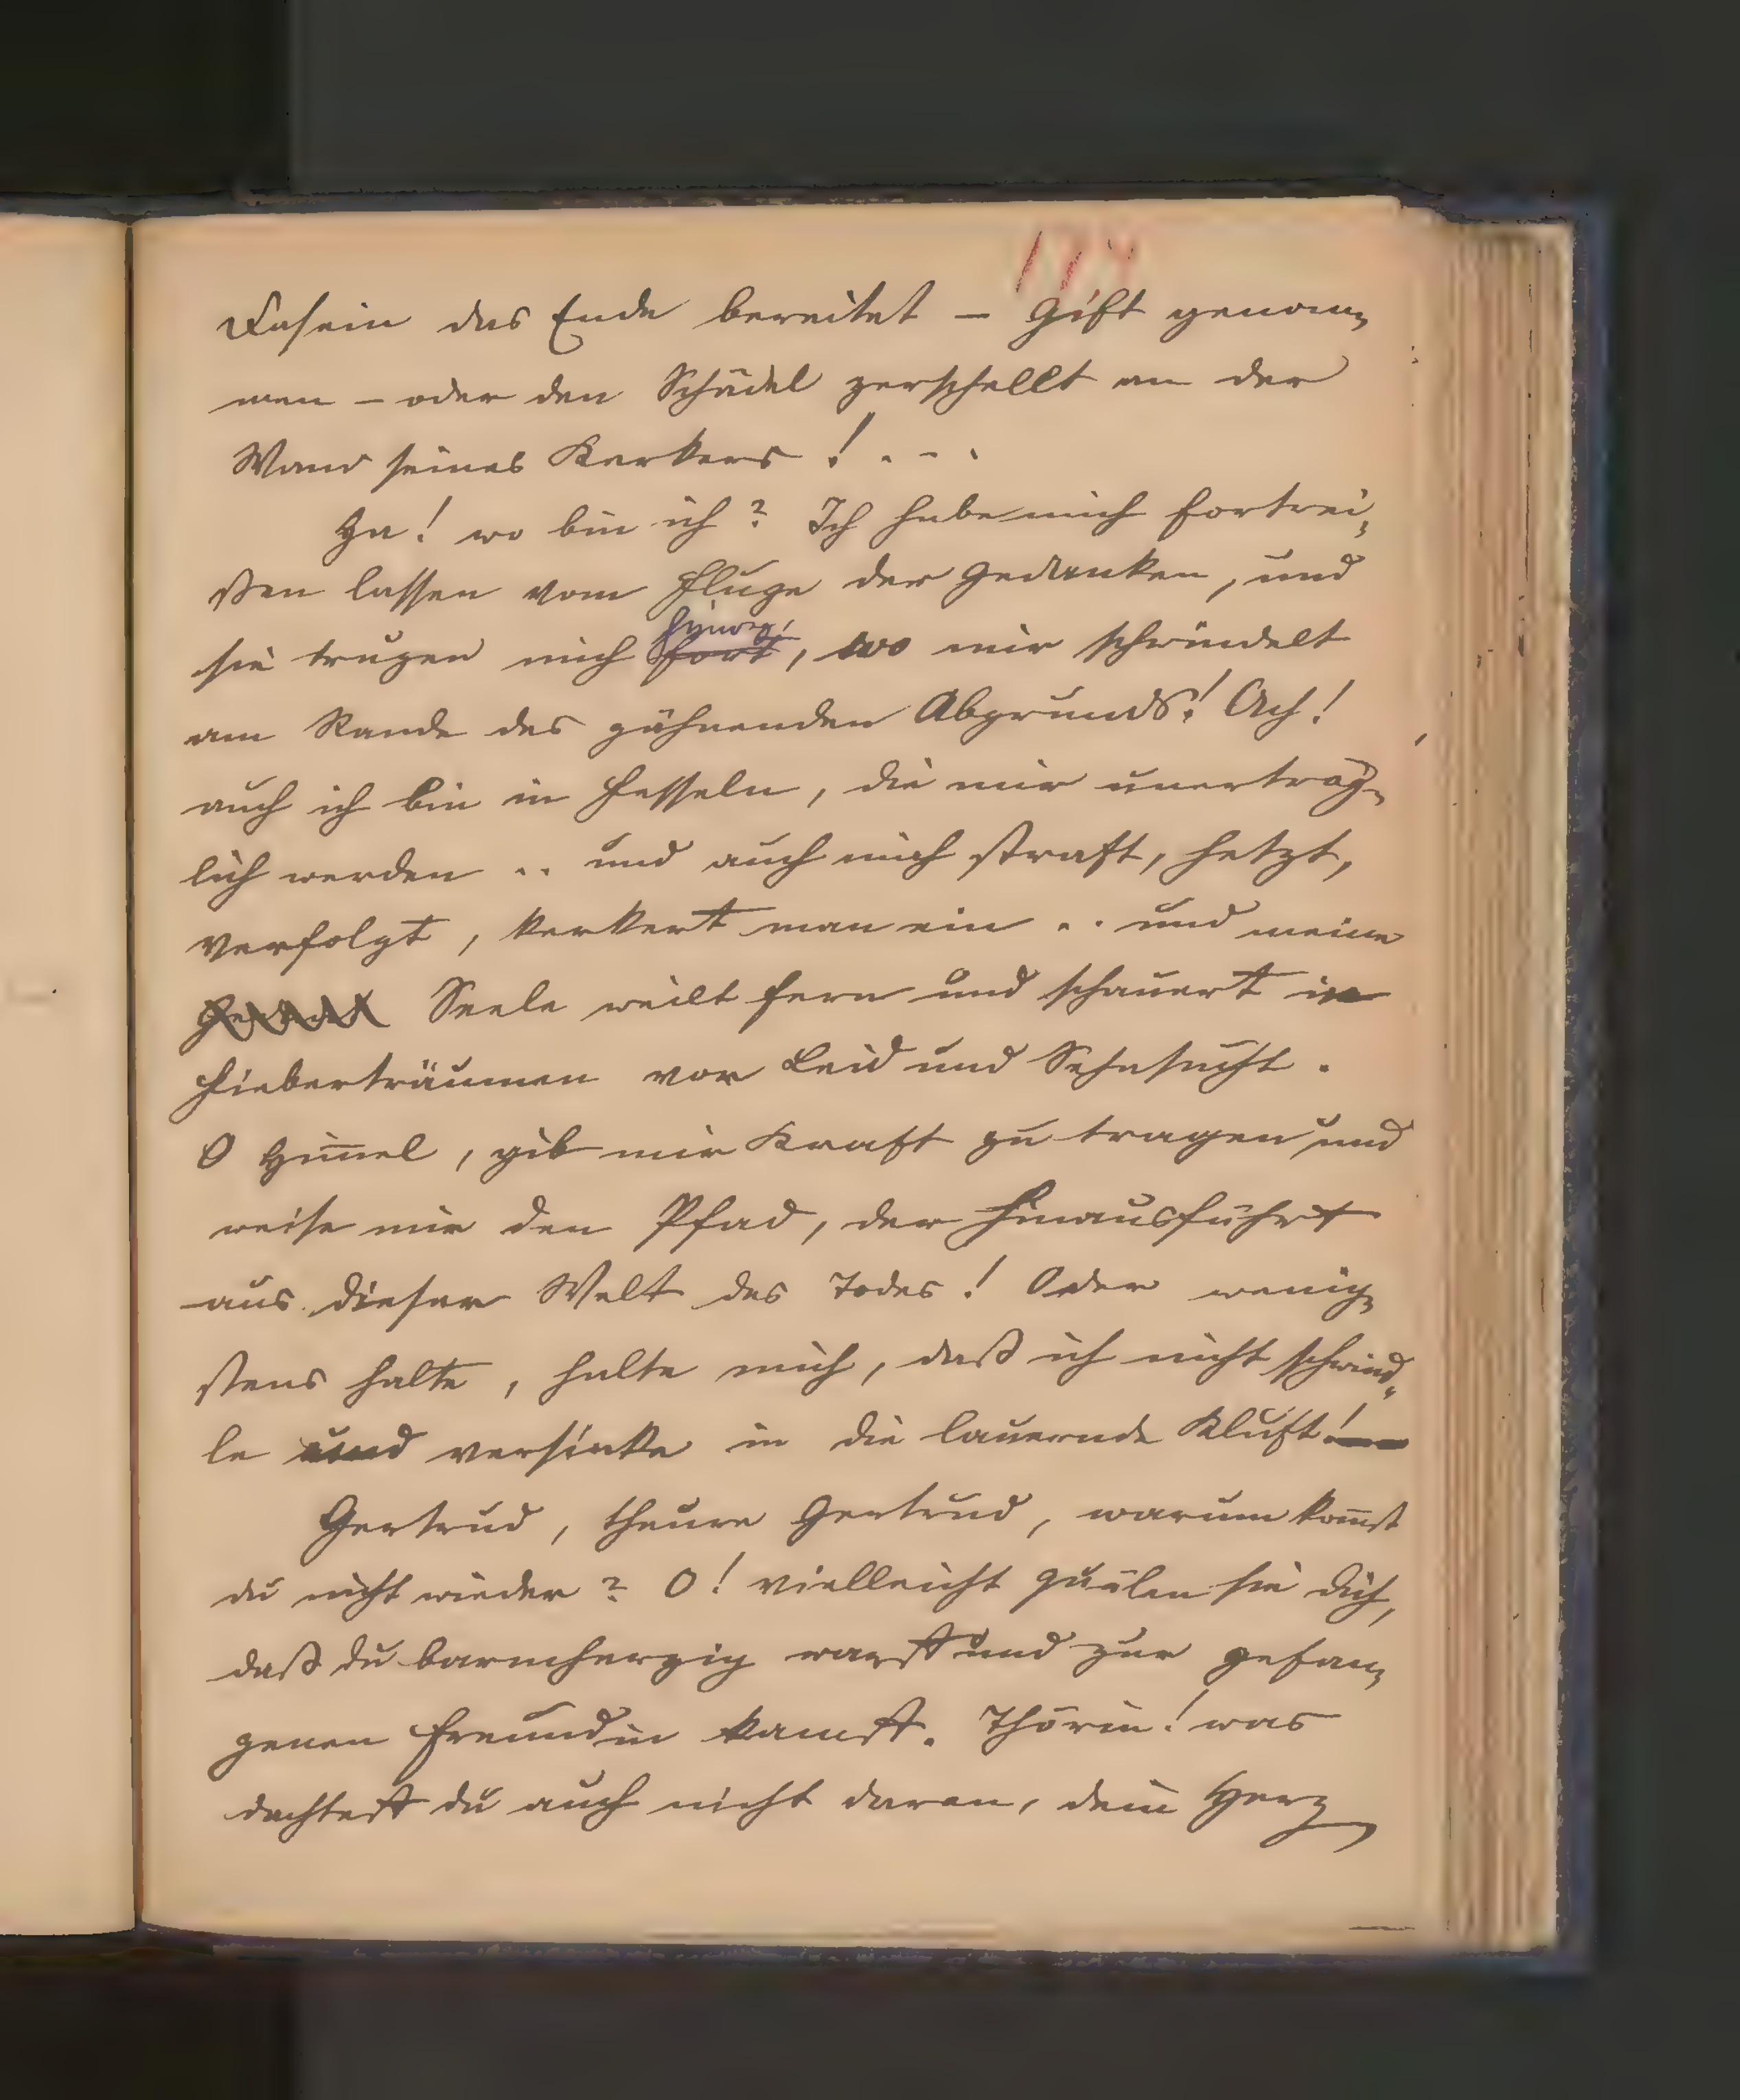 174
Dasein das Ende bereitet – Gift genom-
men – oder den Schädel zerschellt an der
Wand seines Kerkers! . . . .
Ha! wo bin ich? Ich habe mich fortrei-
ßen lassen vom Fluge der Gedanken, und
hinweg,
sie trugen mich fort, wo mir schwindelt
am Rande des gähnenden Abgrunds! Ach!
auch ich bin in Fesseln, die mir unerträg-
lich werden .. und auch mich straft, hetzt,
verfolgt, kerkert man ein .. und meine
Seele weilt fern und schauert in
Fieberträumen vor Leid und Sehnsucht.
O Him̄el, gib mir Kraft zu tragen und
weise mir den Pfad, der hinausführt
aus dieser Welt des Todes! Oder wenig-
stens halte, halte mich, daß ich nicht schwind-
le und versinke in die lauernde Kluft! —
Gertrud, theure Gertrud, warum kom̄st
du nicht wieder? O! vielleicht quälen sie dich,
daß du barmherzig warst und zur gefan-
genen Freundin kamst. Thörin! was
dachtest du auch nicht daran, dein Herz